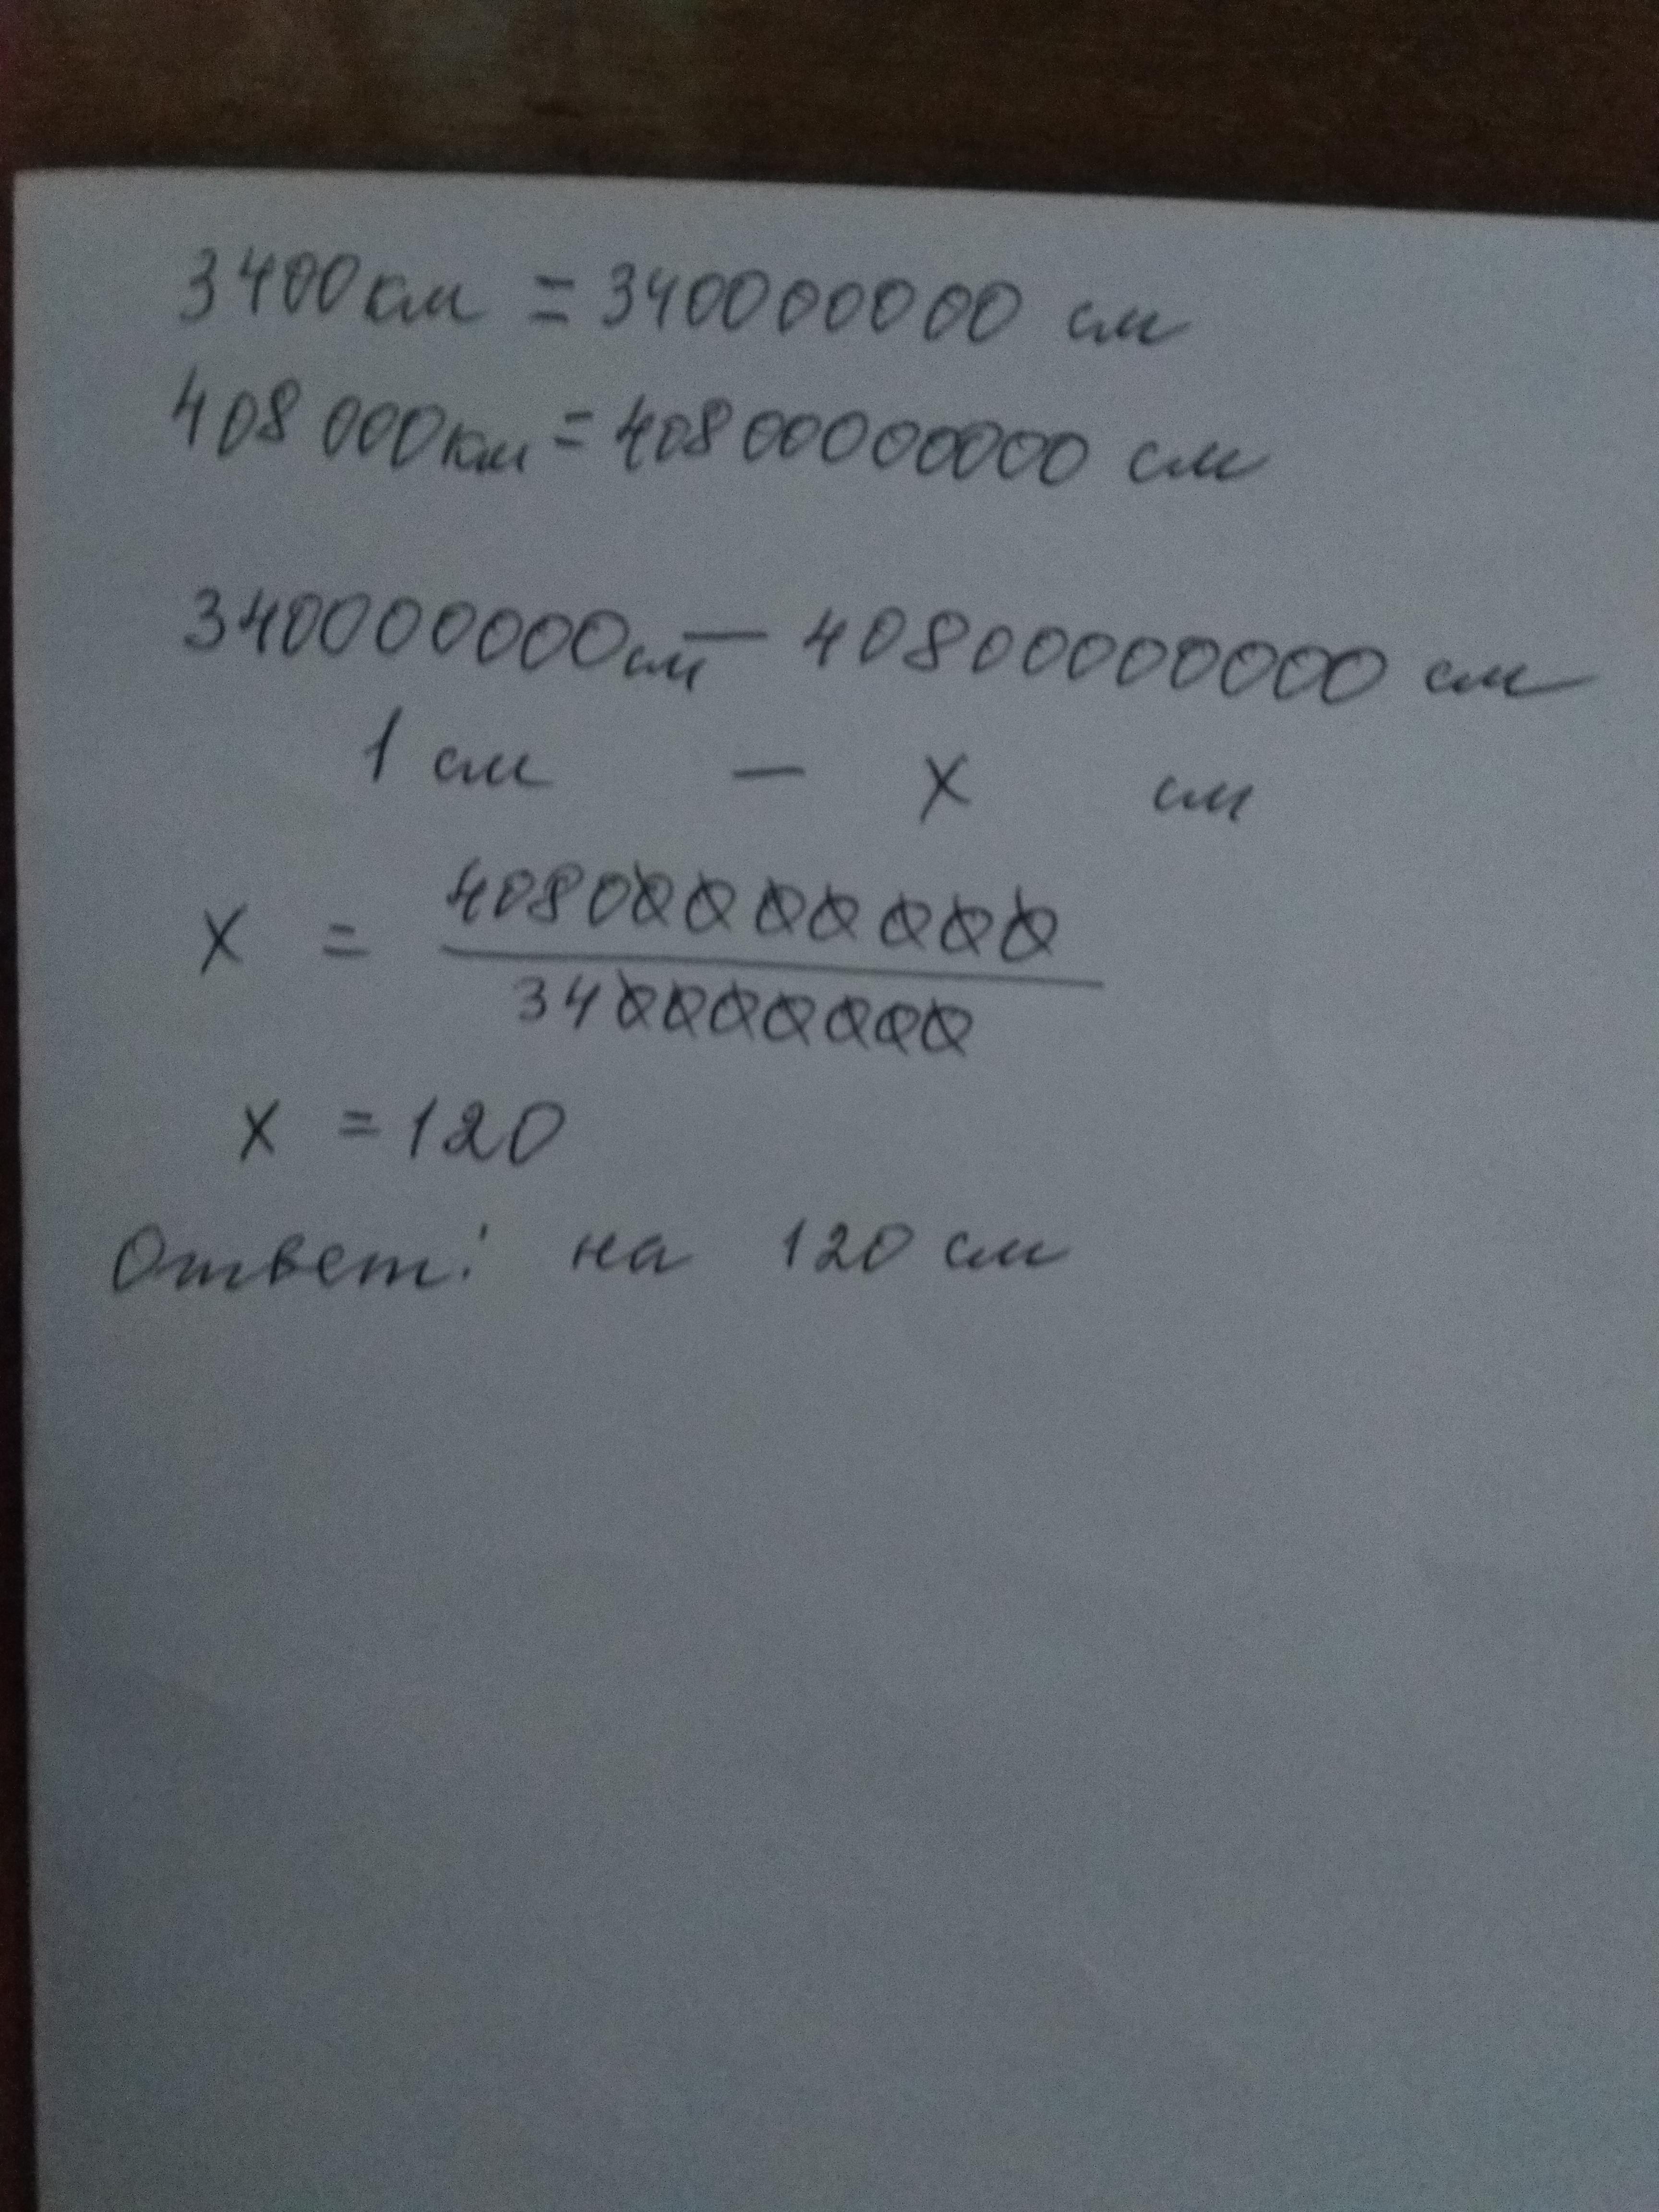 3400км = 340000000 см
408 000км = 408 00000000 см
340000000см — 40800000000 см
1 см — х см
х = 40800000000
340000000
х = 120
Ответ: на 120 см